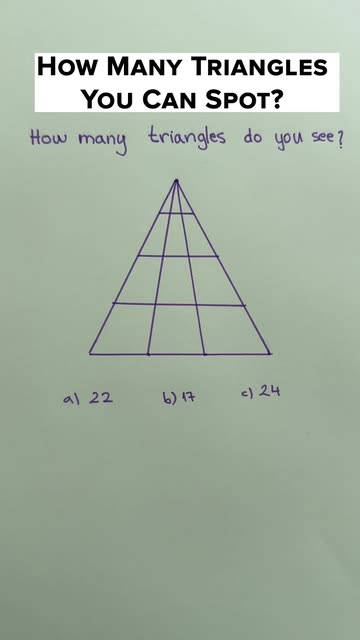 How Many Triangles
You Can Spot?
How many triangles do you see?
a) 22 b) 17 c) 24